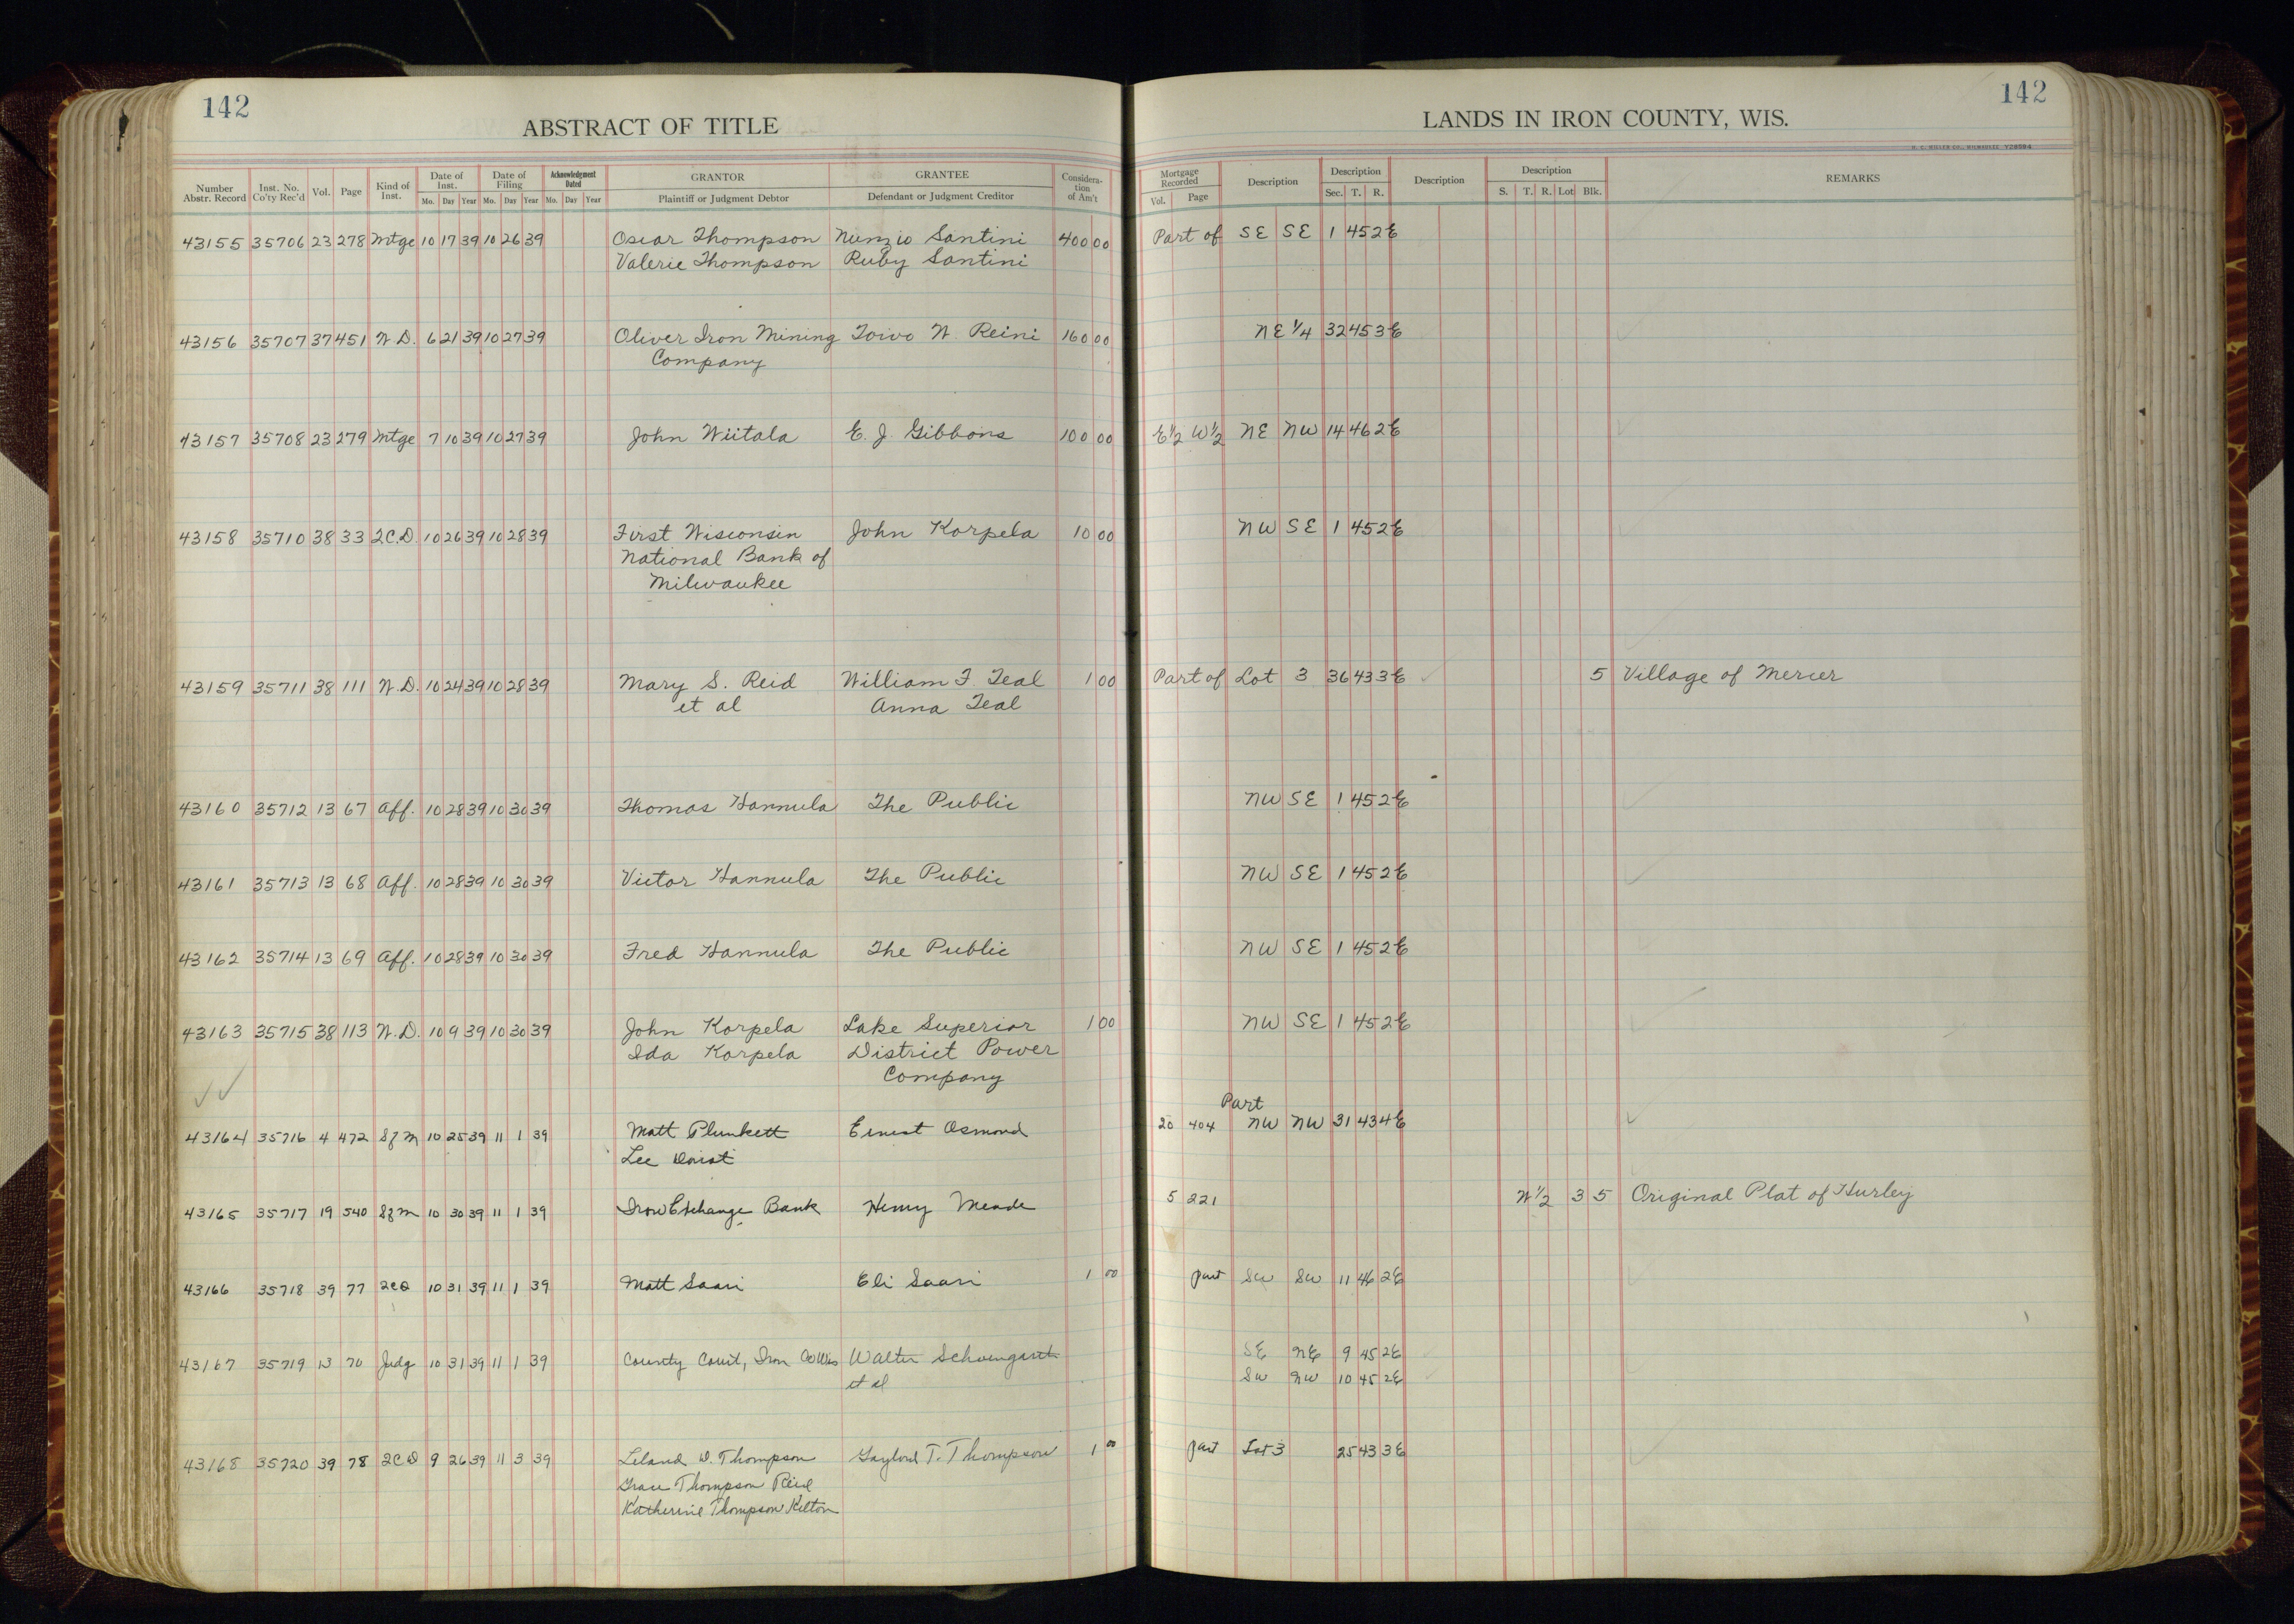 142
ABSTRACT OF TITLE
Number Abstr. Record Inst. No. Co'ty Rec'd Vol. Page Kind of Inst. Date of Inst. Mo. Day Year Date of Filing Mo. Day Year Acknowledgment Dated Mo. Day Year GRANTOR Plaintiff or Judgment Debtor GRANTEE Defendant or Judgment Creditor Consideration of Am't
43155 35706 23 278 Mtge 10 17 39 10 26 39 Oscar Thompson Nunzio Santini 400 00
Valerie Thompson Ruby Santini
43156 35707 37 451 W.D. 6 21 39 10 27 39 Oliver Iron Mining Toivo W. Reini 160 00
Company
43157 35708 23 279 Mtge 7 10 39 10 27 39 John Wiitala E. J. Gibbons 100 00
43158 35710 38 33 2C.D. 10 26 39 10 28 39 First Wisconsin John Korpela 10 00
National Bank of
Milwaukee
43159 35711 38 111 W.D. 10 24 39 10 28 39 Mary S. Reid William F. Teal 1 00
et al Anna Teal
43160 35712 13 67 Aff. 10 28 39 10 30 39 Thomas Hannula The Public
43161 35713 13 68 Aff. 10 28 39 10 30 39 Victor Hannula The Public
43162 35714 13 69 Aff. 10 28 39 10 30 39 Fred Hannula The Public
43163 35715 38 113 W.D. 10 9 39 10 30 39 John Korpela Lake Superior 1 00
Ida Korpela District Power
Company
43164 35716 4 472 Sf M 10 25 39 11 1 39 Matt Plunkett Ernest Osmond
Lee
43165 35717 19 540 Sf M 10 30 39 11 1 39 Iron Exchange Bank Henry Meade
43166 35718 39 77 2CD 10 31 39 11 1 39 Matt Saari Eli Saari 1 00
43167 35719 13 70 Judg 10 31 39 11 1 39 County Court, Iron Co Wis Walter
et al
43168 35720 39 78 2CD 9 26 39 11 3 39 Leland D. Thompson Gaylord T. Thompson 1 00
Grace Thompson Reid
Katherine Thompson Kelton
142
LANDS IN IRON COUNTY, WIS.
H. C. MILLER CO., MILWAUKEE Y28594
Mortgage Recorded Vol. Page Description Description Sec. T. R. Description Description S. T. R. Lot Blk. REMARKS
Part of SE SE 1 45 2E
NE 1/4 32 45 3E
E½ W½ NE NW 14 46 2E
NW SE 1 45 2E
Part of Lot 3 36 43 3E 5 Village of Mercer
NW SE 1 45 2E
NW SE 1 45 2E
NW SE 1 45 2E
NW SE 1 45 2E
Part
20 404 NW NW 31 43 4E
5 221 W 1/2 3 5 Original Plat of Hurley
part SW SW 11 46 2E
SE NE 9 45 2E
SW NW 10 45 2E
part Lot 3 25 43 3E